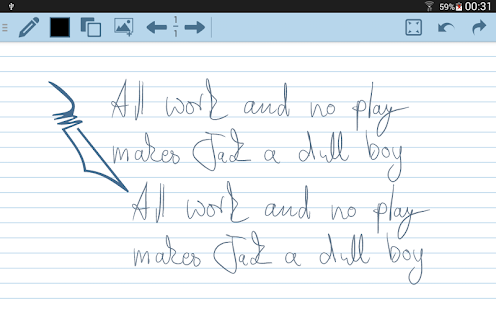 59% 00:31
1
1
All work and no play
makes Jack a dull boy
All work and no play
makes Jack a dull boy